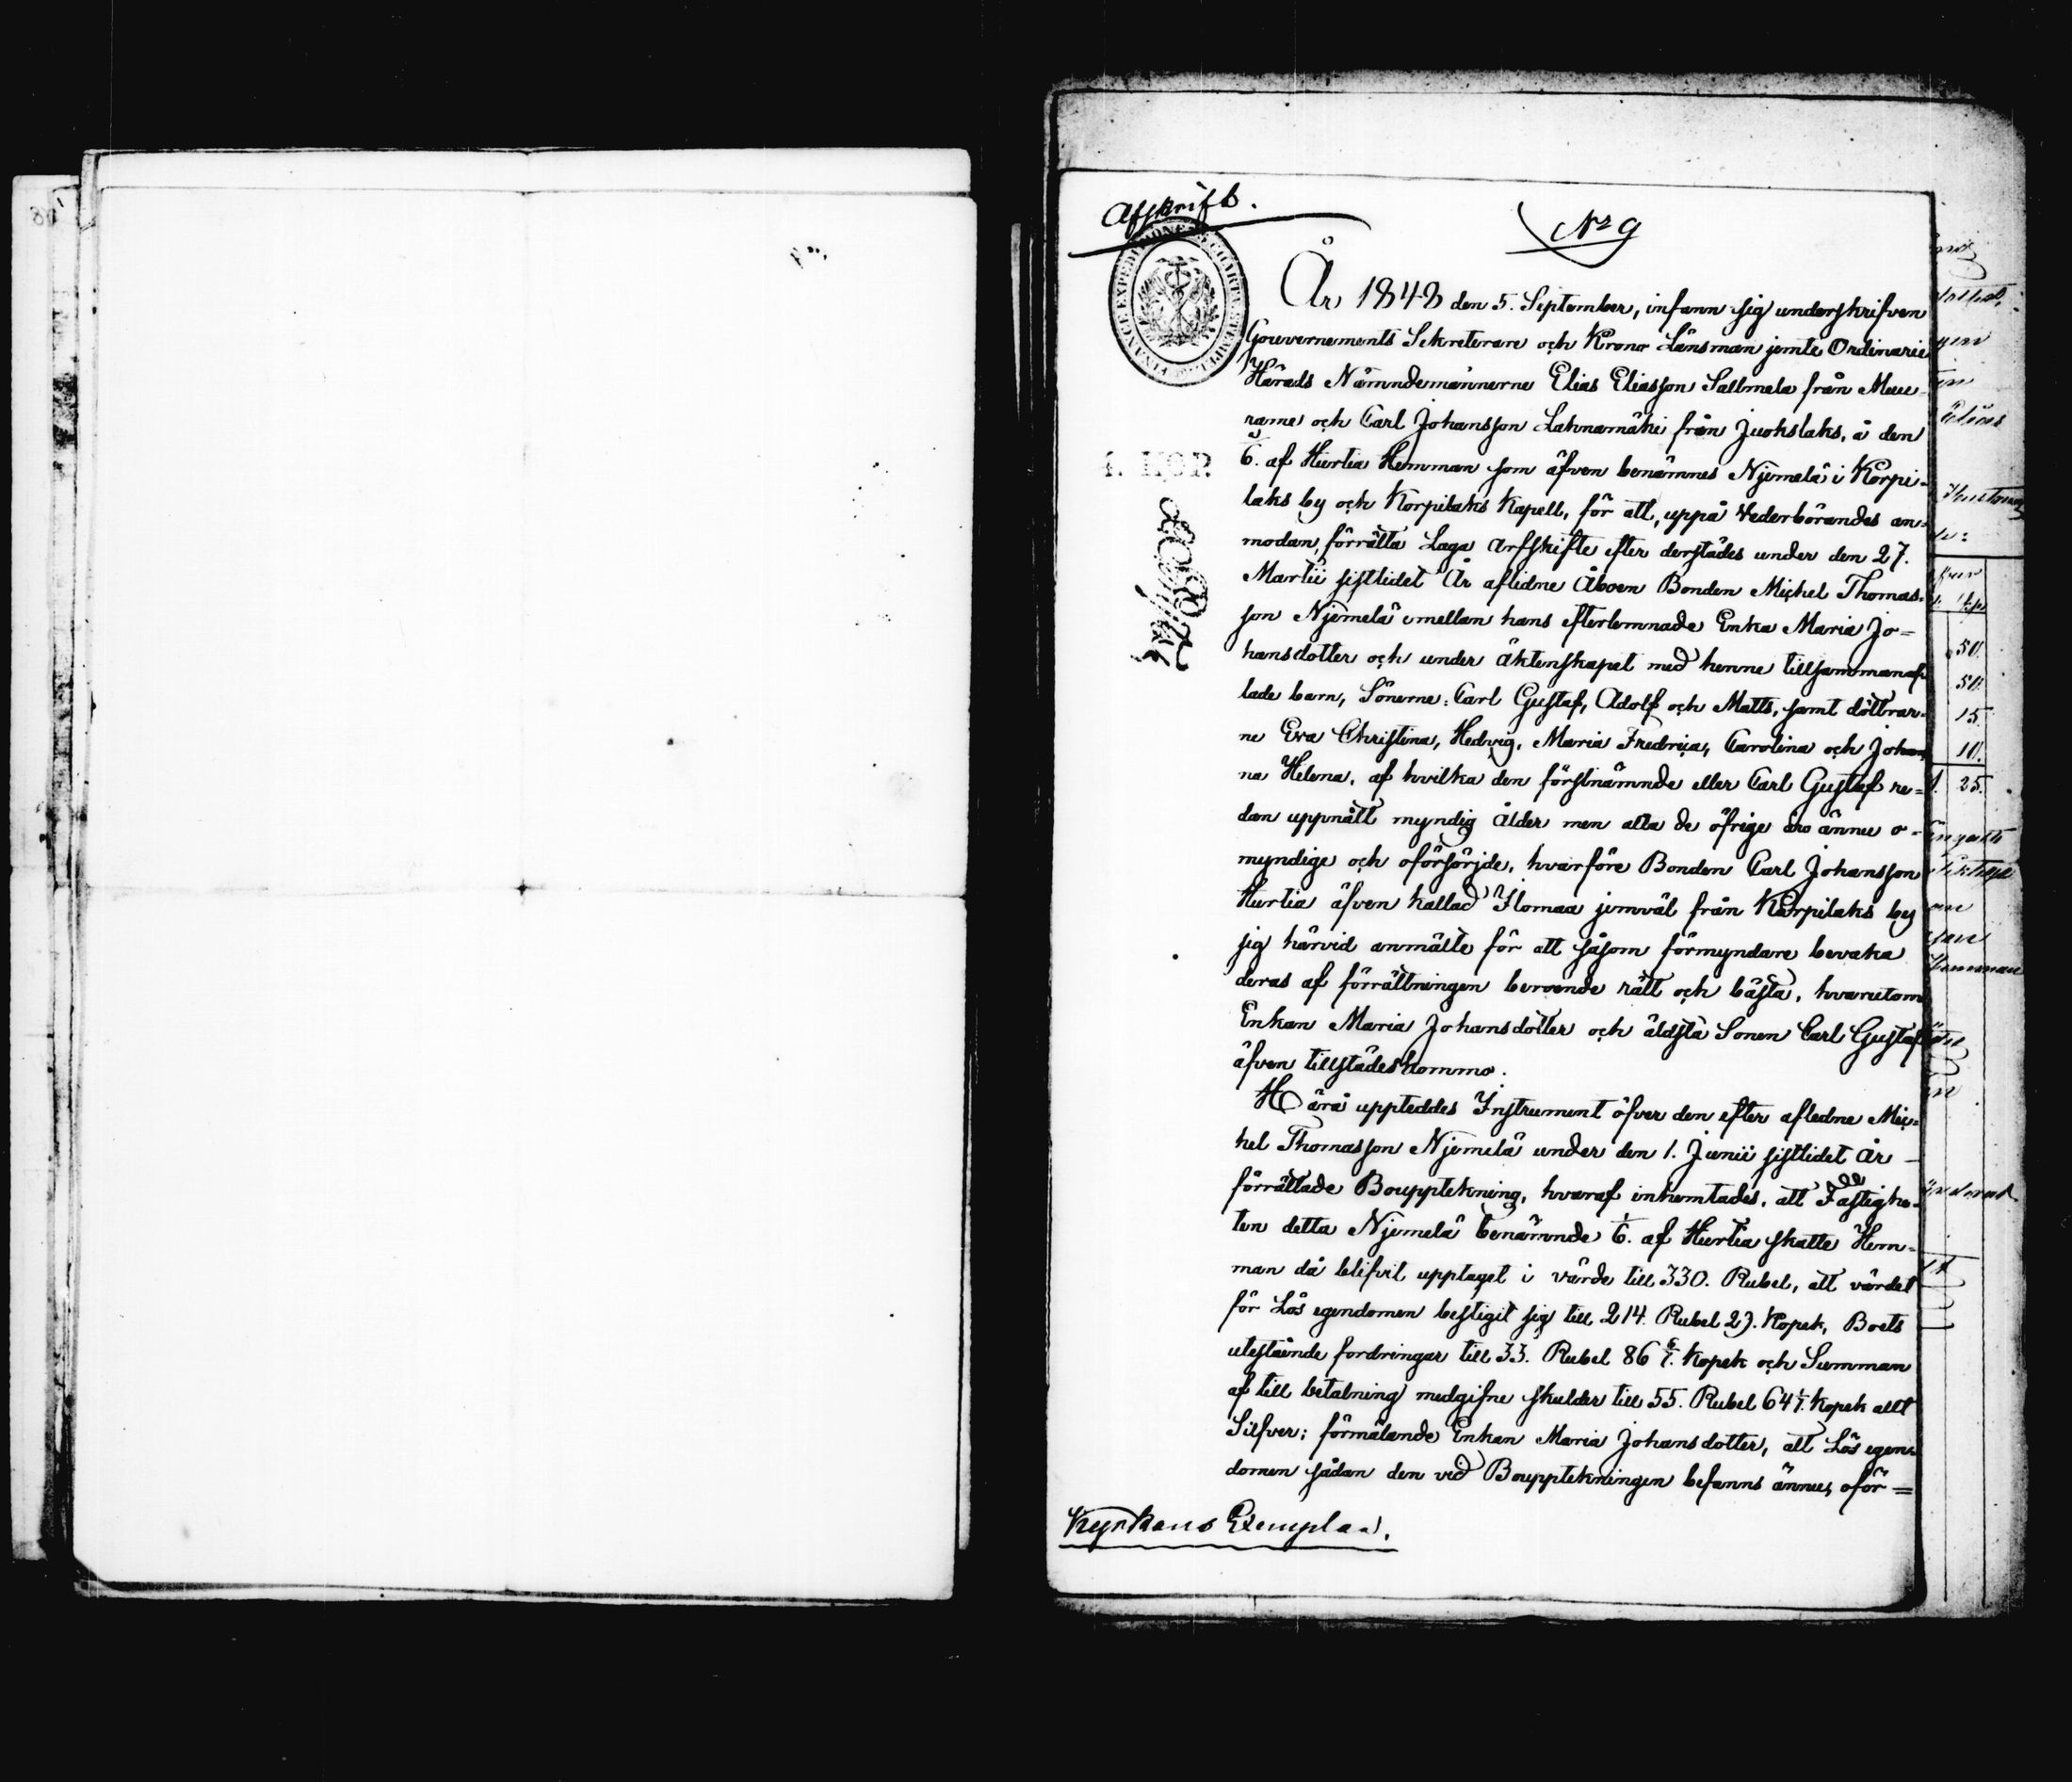 Afskrift.
No 9
År 1848 den 5. September, infann sig underskrifven
Gouvernements Sekreterare och Krono Länsman jemte Ordinarie
Härads Nämndemännerne Elias Eliasson Sallmela från Muu-
rame och Carl Johansson Lahnamäki från Juokslaks, å den
1/6. af Hurtia Hemman som äfven benämnes Njemelä i Korpi-
laks by och Korpilaks Kapell, för att, uppå Vederbörandes an-
modan, förrätta Laga Arfskifte efter derstädes under den 27.
Martii sistlidet År aflidne Åboen Bonden Michel Thomas-
son Njemelä emellan hans efterlemnade Enka Maria Jo-
hansdotter och under äktenskapet med henne tillsammanaf-
lade barn, Sönerne: Carl Gustaf, Adolf och Matts, samt döttrar-
ne Eva Christina, Hedvig, Maria Fredrica, Carolina och Johan-
na Helena, af hvilka den förstnämnde eller Carl Gustaf re-
dan uppnått myndig ålder men alla de öfrige äro ännu o-
myndige och oförsörjde, hvarföre Bonden Carl Johansson
Hurtia äfven kallad Ilomaa jemväl från Korpilaks by
sig härvid anmälte för att såsom förmyndare bevaka
deras af förrättningen beroende rätt och bästa, hvarutom
Enkan Maria Johansdotter och äldsta Sonen Carl Gustaf
äfven tillstädeskommo.
Härå uppteddes Instrument öfver den efter afledne Mic-
hel Thomasson Njemelä under den 1. Junii sistlidet År
förrättade Bouppteckning, hvaraf inhemtades, att Fastighe-
ten detta Njemelä benämnde 1/6. af Hurtia skatte Hem-
man då blifvit upptaget i värde till 330. Rubel, att värdet
för Lös egendomen bestigit sig till 214. Rubel 27. Kopek, Boets
utestående fordringar till 33. Rubel 86 6/7. Kopek och Summan
af till betalning medgifne skulder till 55. Rubel 64 1/7. Kopek allt
Silfver; förmälande Enkan Maria Johansdotter, att Lös egen-
domen sådan den vid Bouppteckningen befanns ännu, oför-
Kyrkans Exemplar.
4. KOP.
50.
50.
15.
10.
25.